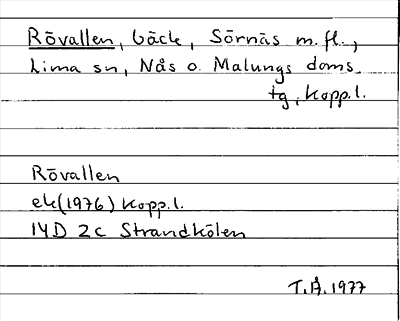 Rövallen, bäck, Sörnäs m.fl.,
Lima sn, Nås o. Malungs doms.
tg, Kopp.l.
Rövallen
ek(1976) Kopp.l.
14D 2c Strandkölen
T.Å.1977